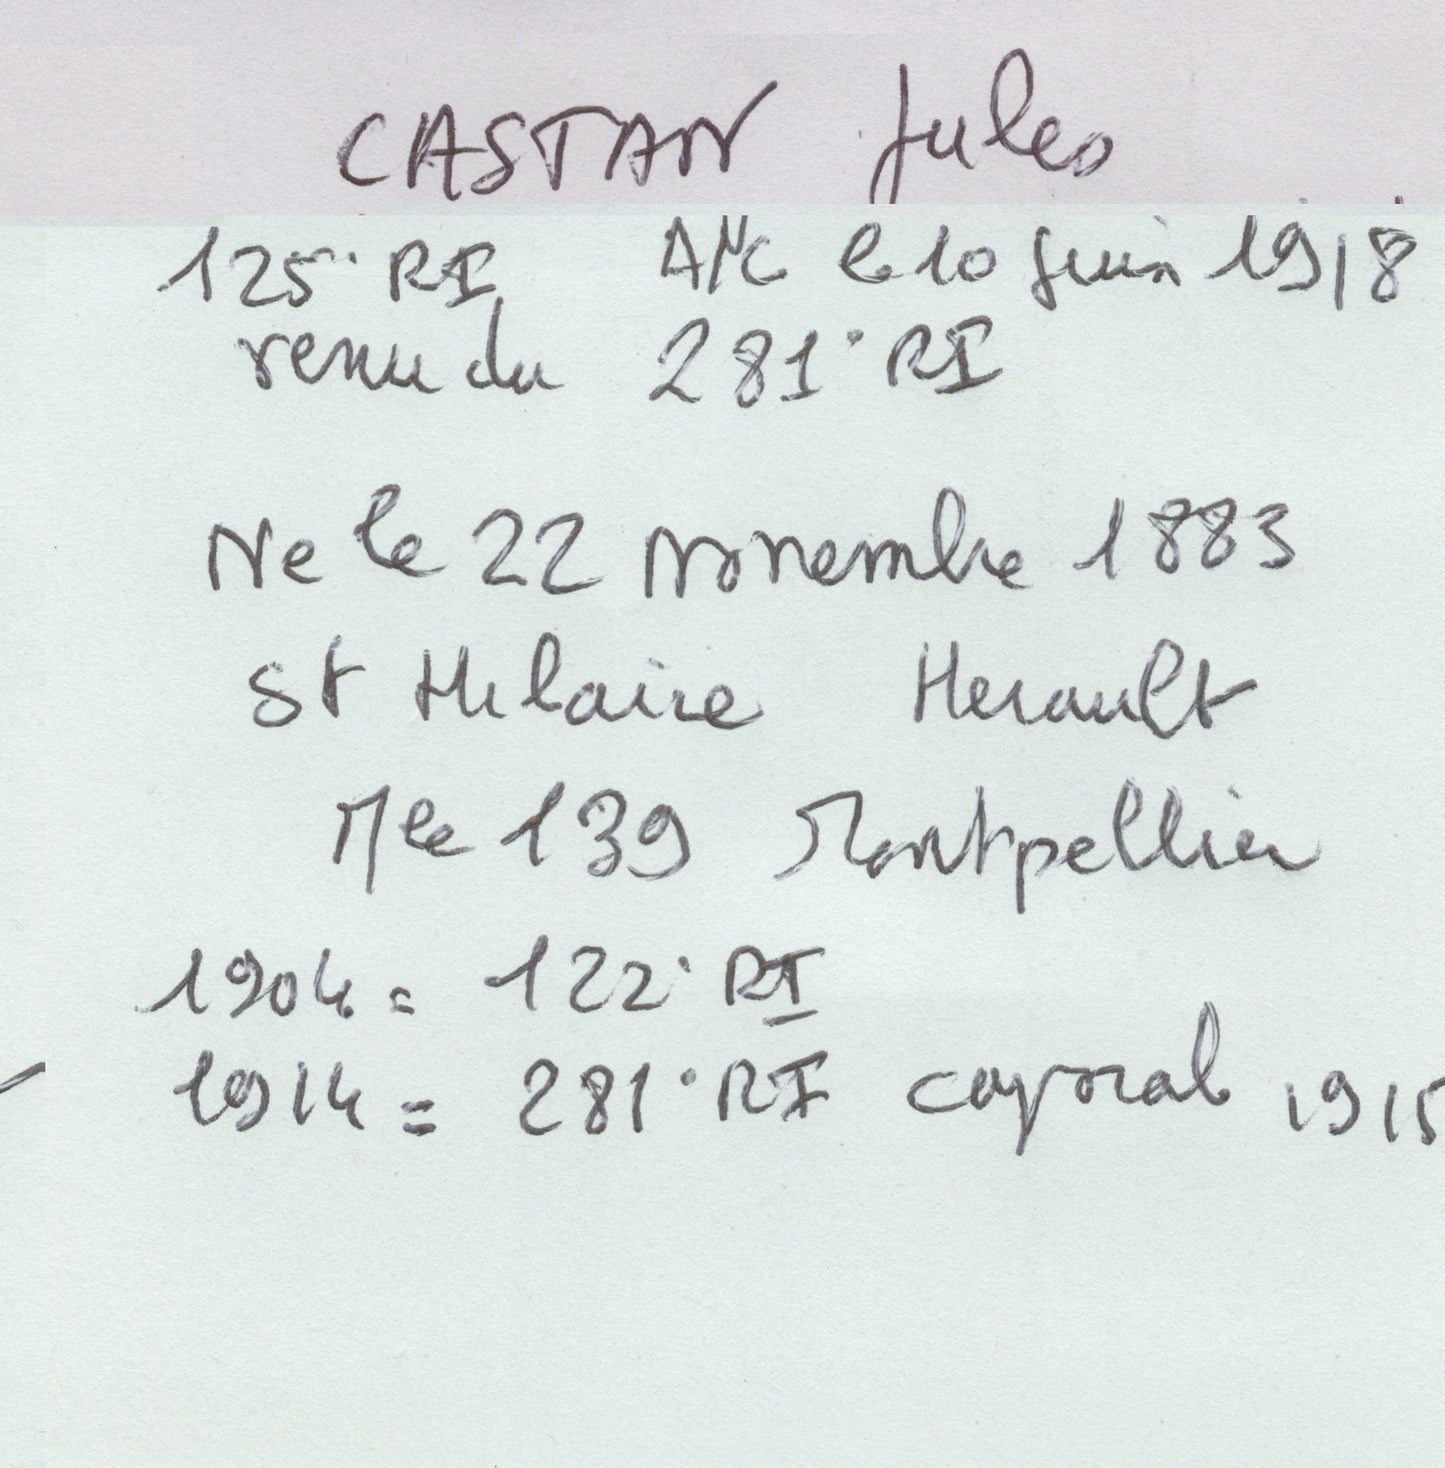 CASTAN Jules
125° RI A/C le 10 juin 1918
venu du 281° RI
Ne le 22 Novembre 1883
St Hilaire Herault
Mle 139 Montpellier
1904 = 122° RI
1914 = 281° RI caporal 1915